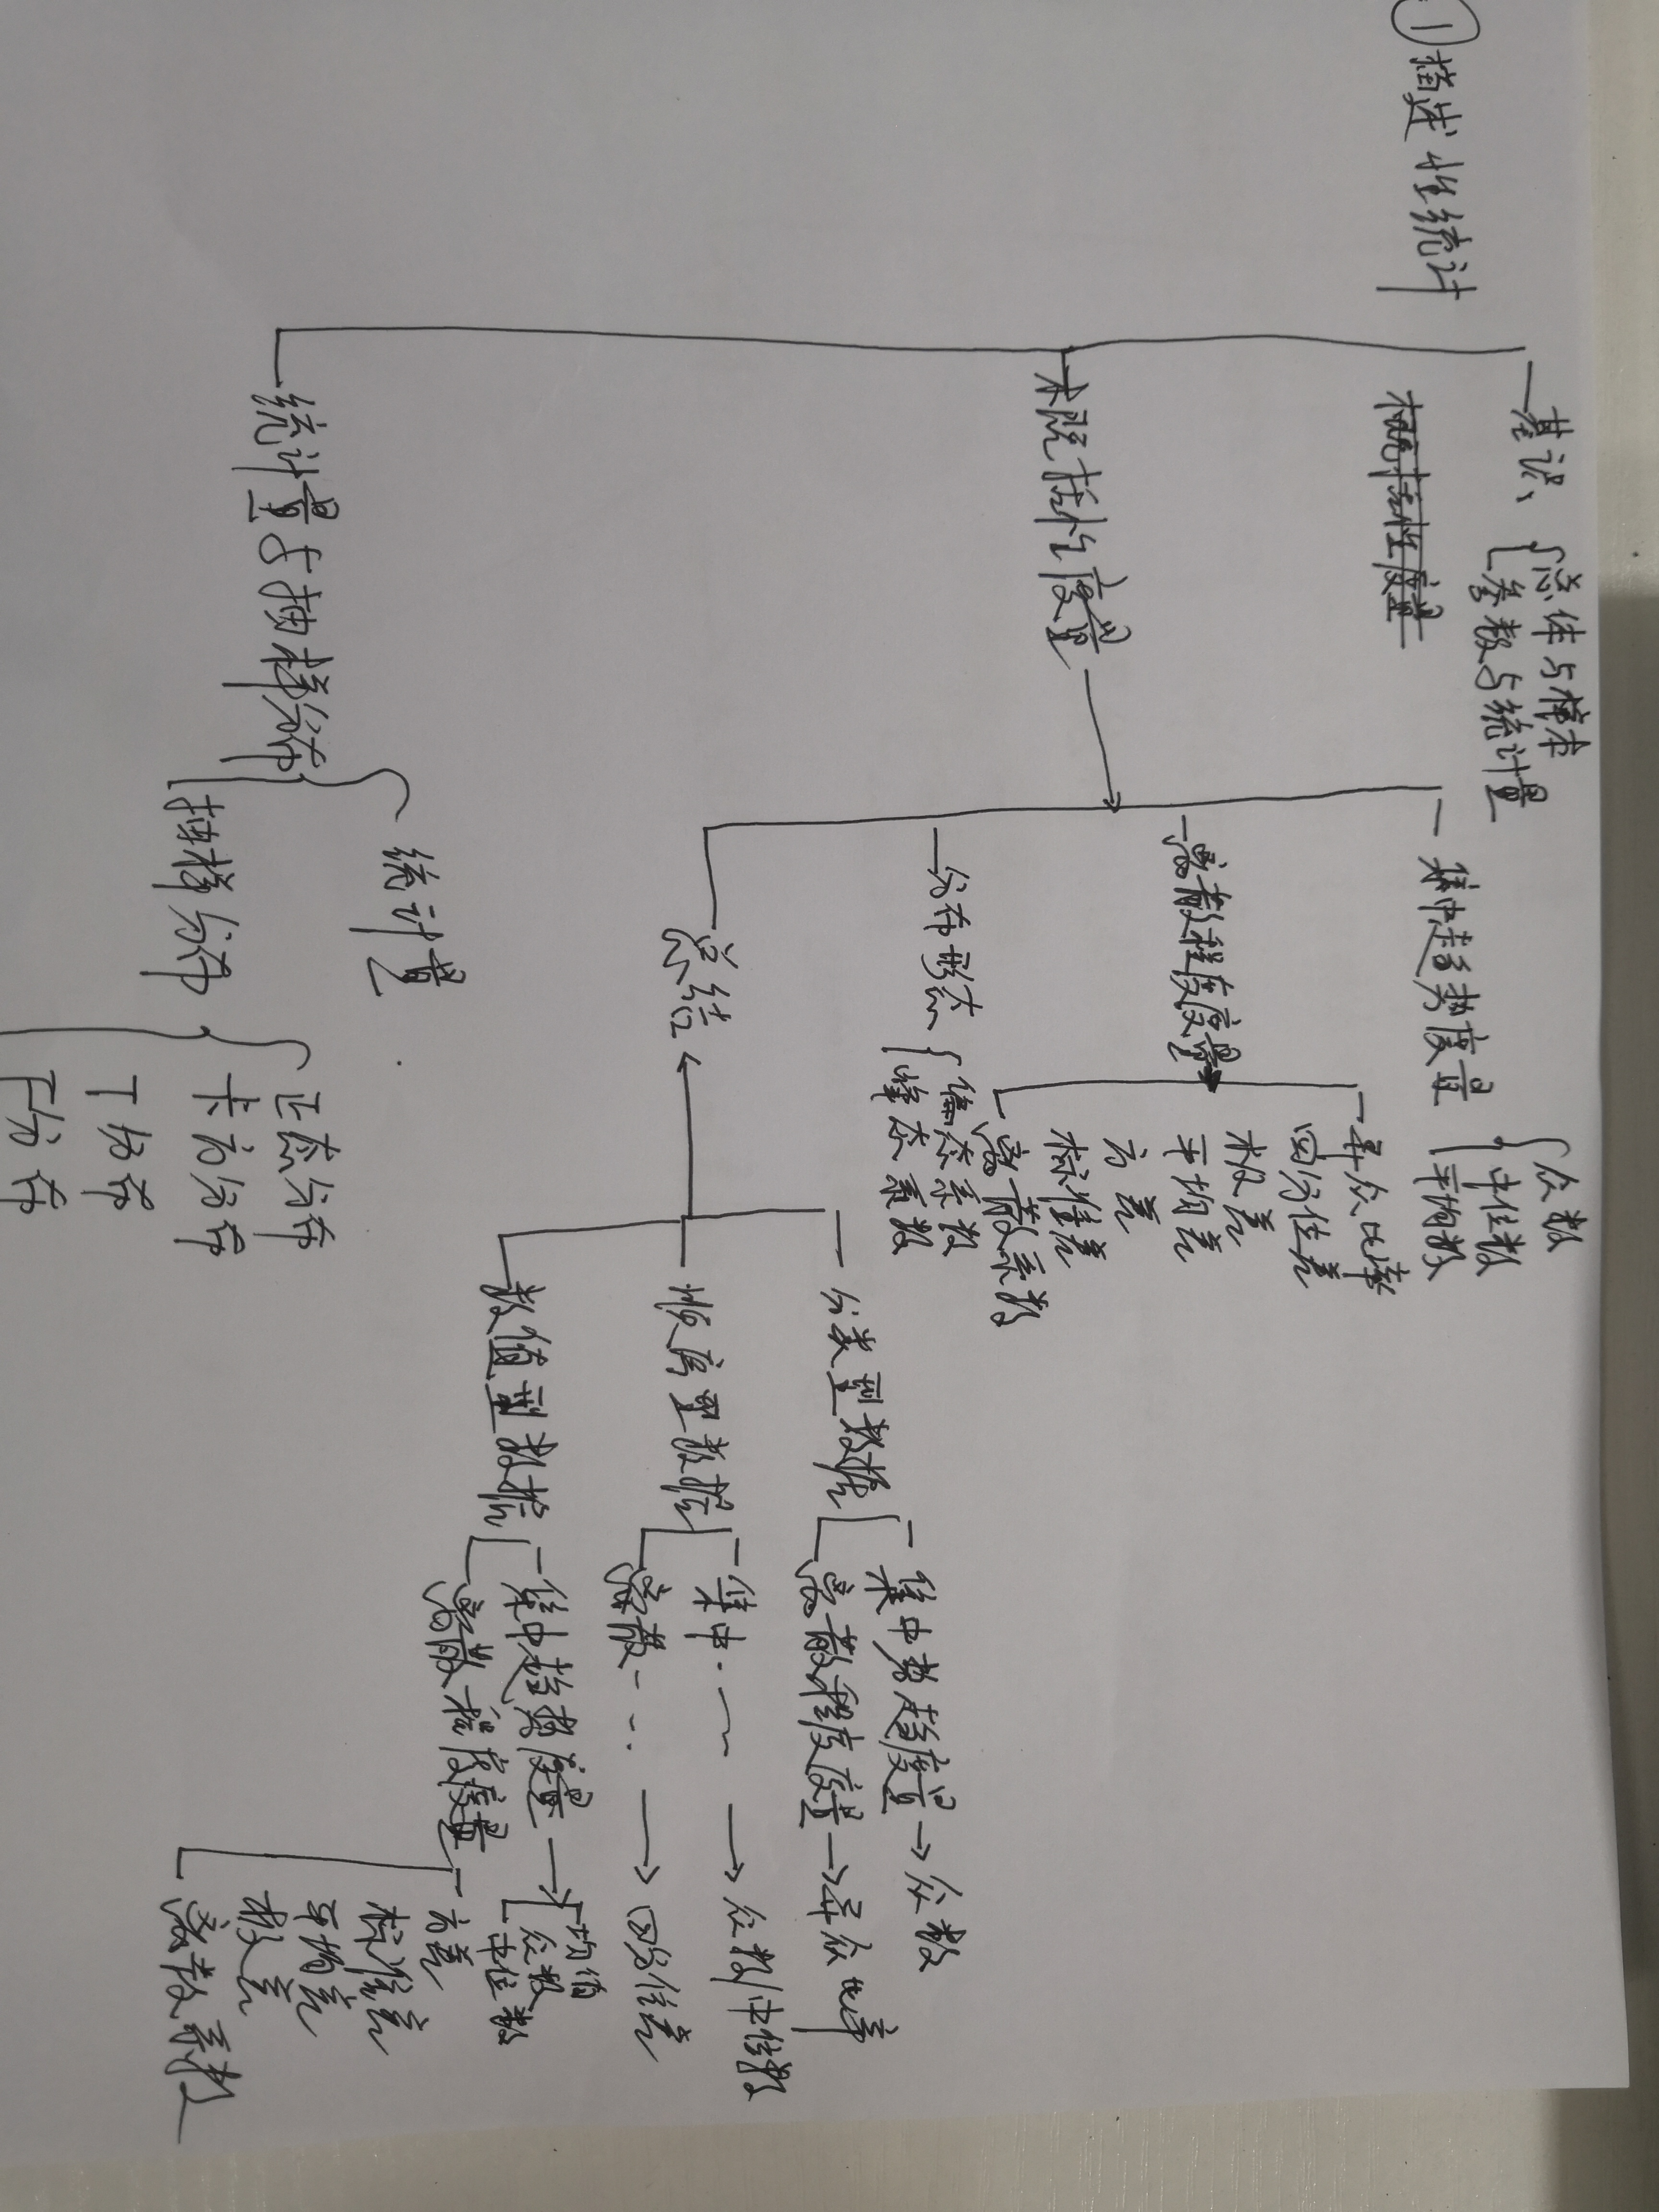 ①描述性统计
基识
总体与样本
参数与统计量
概括性度量
集中趋势度量
众数
中位数
平均数
离散程度度量
异众比率
四分位差
极差
平均差
方差
标准差
离散系数
分布形态
偏态系数
峰态系数
总结
分类型数据
集中势趋度量→众数
离散程度度量→异众比率
顺序型数据
集中……→众数/中位数
离散……→四分位差
数值型数据
集中趋势度量→
均值
众数
中位数
离散程度度量
方差
标准差
平均差
极差
离散系数
统计量与抽样分布
统计量
抽样分布
正态分布
卡方分布
T分布
F分布